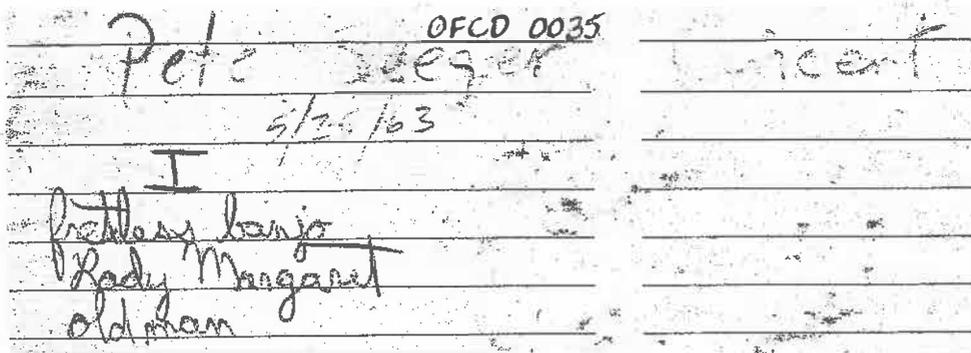 OFCD 0035
Pete Seeger
5/ /63
I
fretless banjo
Lady Margaret
old man